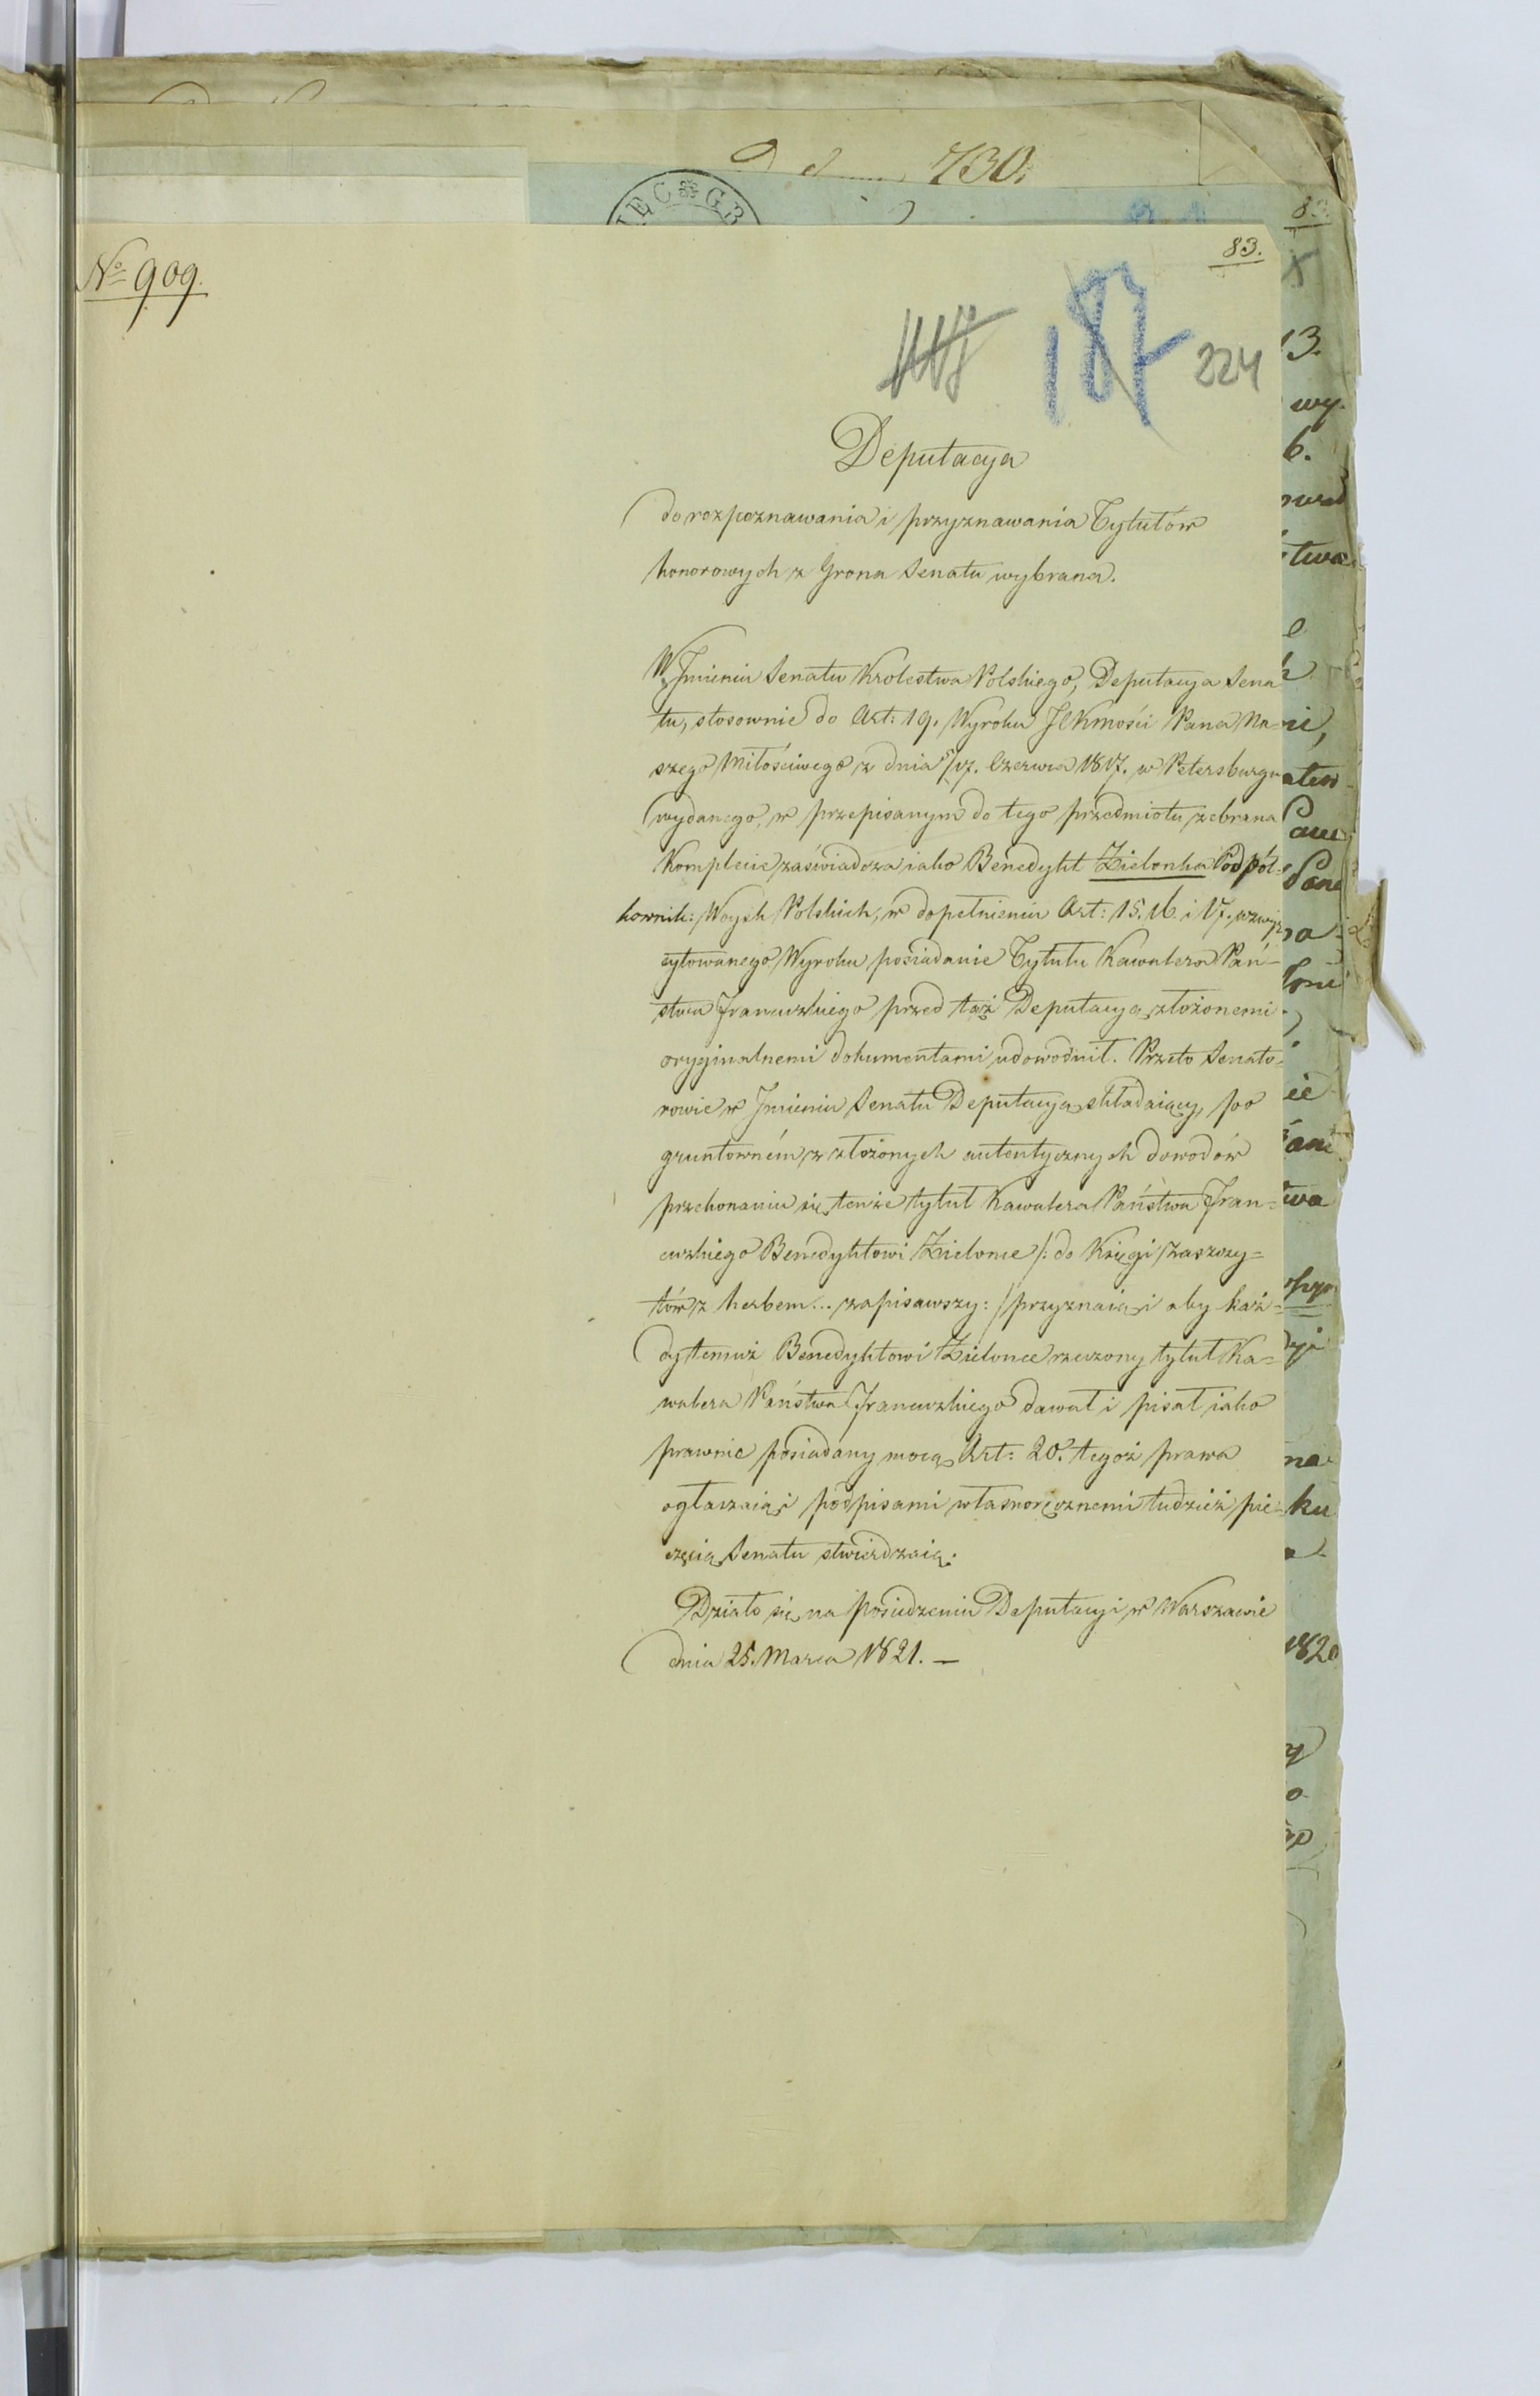 730.
83.
No 909.
187 224
Deputacya
do rozpoznawania i przyznawania Tytułów
honorowych z Grona Senatu wybrana.
W Jmieniu Senatu Krolestwa Polskiego, Deputacya Sena
tu, stosownie do Art: 19. Wyroku JCKmości Pana Na-
szego Miłościwego z dnia 5/17. Czerwca 1817. w Petersburgu
wydanego, w przepisanym do tego przedmiotu zebrana
Komplecie zaświadcza iako Benedykt Zielonka Podpół-
kownik: Woysk Polskich, w dopełnieniu Art: 15. 16. i 17. wzwyż
cytowanego Wyroku posiadanie Tytułu Kawalera Pań-
stwa Francuzkiego przed taż Deputacyą złożonemi
oryginalnemi dokumentami udowodnił. Przeto Senato-
rowie w Jmieniu Senatu Deputacyą składaiący, po
gruntowném z złożonych autentycznych dowodów
przekonaniu się, tenże tytuł Kawalera Państwa Fran-
cuzkiego Benedyktowi Zielonce /: do Księgi Zaszczy-
tów z herbem... zapisawszy: / przyznaią i aby każ-
dy temuż Benedyktowi Zielonce rzeczony tytuł Ka-
walera Państwa Francuzkiego dawał i pisał iako
prawnie posiadany mocą Art: 20. tegoż prawa
ogłaszaią i podpisami własnoręcznemi tudzież pie-
częcią Senatu stwierdzaią.
Działo się na posiedzeniu Deputacyi w Warszawie
dnia 25. Marca 1821. —